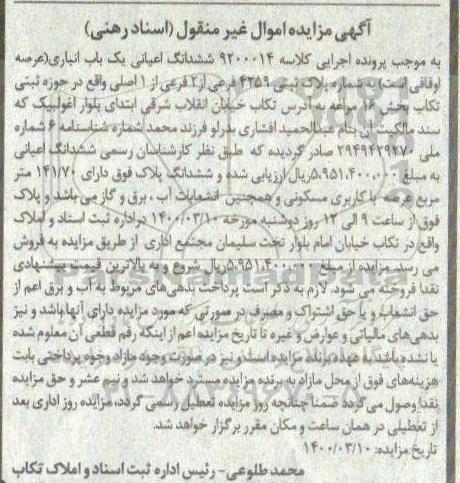 آگهی مزایده اموال غیر منقول (اسناد رهنی)
به موجب پرونده اجرایی کلاسه ۹۲۰۰۰۱۴ ششدانگ اعیانی یک باب انباری(عرصه
اوقافی است) به شماره پلاک ثبتی ۴۲۵۹ فرعی از۲ فرعی از ۱ اصلی واقع در حوزه ثبتی
تکاب بخش ۱۶ مراغه به آدرس تکاب خیابان انقلاب شرقی ابتدای بلوار اغولبیک که
سند مالکیت آن بنام عبدالحمید افشاری بدرلو فرزند محمد شماره شناسنامه ۶ شماره
ملی ۲۹۴۹۴۲۹۲۷۰ صادر گردیده که طبق نظر کارشناسان رسمی ششدانگ اعیانی
به مبلغ ۵،۹۵۱،۴۰۰،۰۰۰ریال ارزیابی شده و ششدانگ پلاک فوق دارای ۱۴۱/۷۰ متر
مربع عرصه با کاربری مسکونی و همچنین انشعابات آب ، برق و گاز می باشد و پلاک
فوق از ساعت ۹ الی ۱۲ روز دوشنبه مورخه ۱۴۰۰/۰۳/۱۰ دراداره ثبت اسناد و املاک
واقع در تکاب خیابان امام بلوار تخت سلیمان مجتمع اداری از طریق مزایده به فروش
می رسد. مزایده از مبلغ ریال شروع و به بالاترین قیمت پیشنهادی
نقدا فروخته می شود، لازم به ذکر است پرداخت بدهی های مربوط به آب و برق اعم از
حق انشعاب و یا حق اشتراک و مصرف در صورتی که مورد مزایده دارای آنها باشد و نیز
بدهی های مالیاتی و عوارض و غیره تا تاریخ مزایده اعم از اینکه رقم قطعی آن معلوم شده
یا نشده باشد به عهده برنده مزایده است و نیز در صورت وجود مازاد وجوه پرداختی بابت
هزینه های فوق از محل مازاد به برنده مزایده مسترد خواهد شد و نیم عشر و حق مزایده
نقدا وصول می گردد ضمنا چنانچه روز مزایده تعطیل رسمی گردد، مزایده روز اداری بعد
از تعطیلی در همان ساعت و مکان مقرر برگزار خواهد شد.
تاریخ مزایده: ۱۴۰۰/۰۳/۱۰
محمد طلوعی- رئیس اداره ثبت اسناد و املاک تکاب